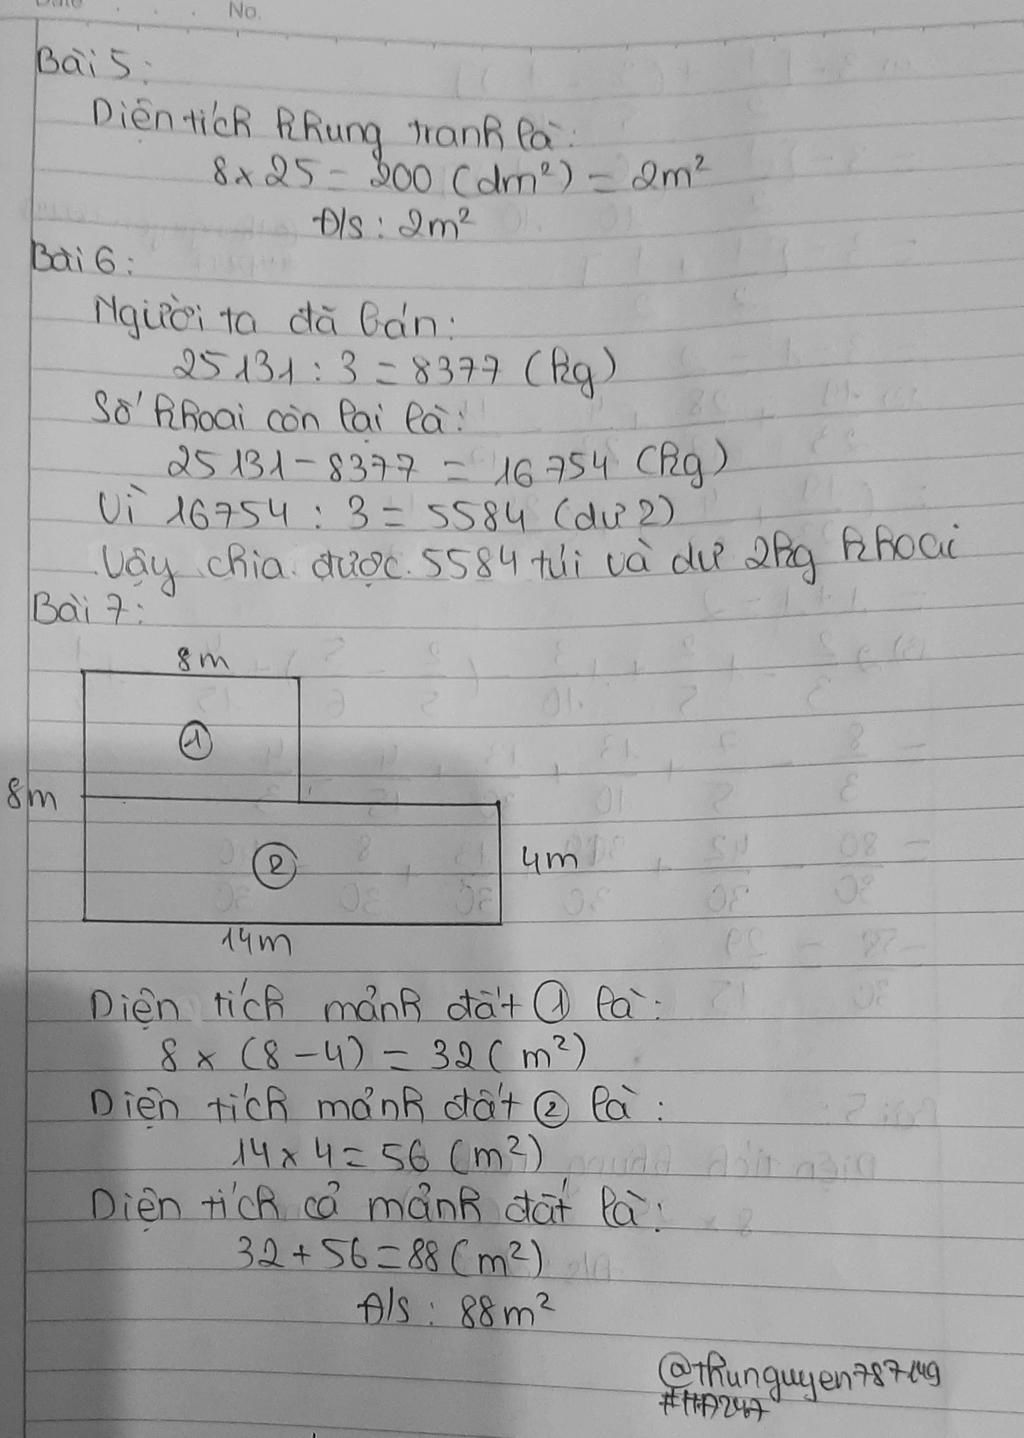 No.
Bài 5:
Diện tích khung tranh là:
8 x 25 = 200 (dm²) = 2m²
Đ/s : 2m²
Bài 6:
Người ta đã bán:
25131 : 3 = 8377 (kg)
Số khoai còn lại là:
25131 - 8377 = 16754 (kg)
Vì 16754 : 3 = 5584 (dư 2)
Vậy chia được 5584 túi và dư 2kg khoai
Bài 7:
8m
①
8m
② 4m
14m
Diện tích mảnh đất ① là:
8 x (8 - 4) = 32 (m²)
Diện tích mảnh đất ② là:
14 x 4 = 56 (m²)
Diện tích cả mảnh đất là:
32 + 56 = 88 (m²)
Đ/s : 88m²
@thunguyen787149